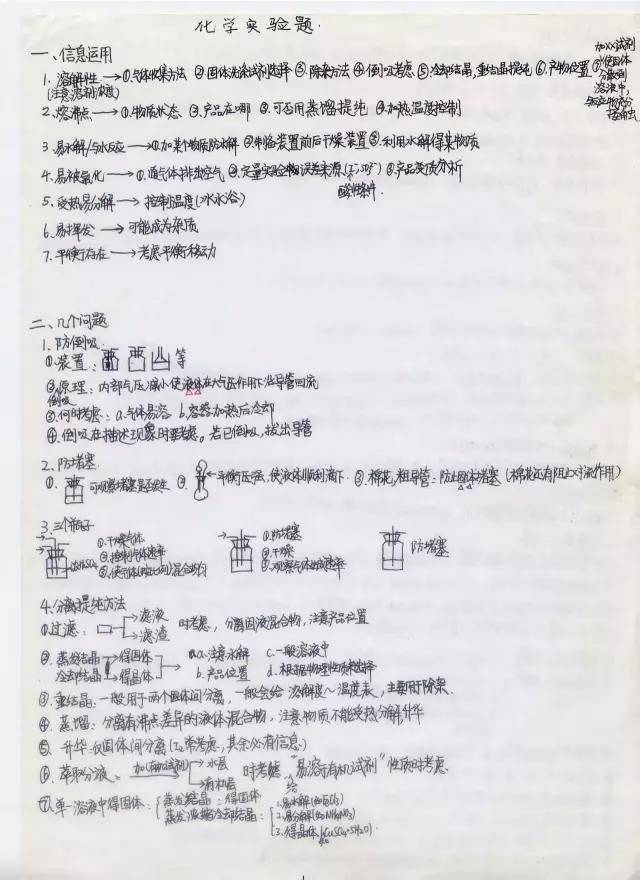 化学实验题.
一、信息运用
1. 溶解性→①气体收集方法 ②固体洗涤试剂选择 ③除杂方法 ④倒吸考虑 ⑤冷却结晶,重结晶提纯 ⑥产物位置 ⑦使固体
加XX试剂
分散到
溶液中,
(注意溶剂/浓度)
2. 熔沸点→①物质状态 ②产品在哪 ③可否用蒸馏提纯 ④加热温度控制
3. 易水解/与水反应→①加某个物质防水解 ②制备装置前后干燥装置 ③利用水解得某物质
4. 易被氧化→①通气体排空气 ②定量实验误差来源 ③产品变质分析
酸性条件.
5. 受热易分解→控制温度(水浴)
6. 易挥发→可能成为杂质
7. 平衡存在→考虑平衡移动
二、几个问题
1. 防倒吸:
①装置: 等
②原理: 内部气压减小使液体在大气压作用下沿导管回流
倒吸
③何时考虑: a.气体易溶 b.容器加热后冷却
④倒吸在描述现象时要考虑。若已倒吸,拔出导管
2. 防堵塞
①. 可观察堵塞是否发生 ②. ←平衡压强,使液体顺利滴下. ③.棉花,粗导管: 防止固体堵塞 (棉花还有阻止对流作用)
3. 三个瓶子
①.干燥气体
②控制气体速率
③.使气体混合均匀
浓H₂SO₄
①防堵塞
②.干燥
③.观察气体的速率
防堵塞
4.分离提纯方法
①过滤: 滤液 滤渣 时考虑, 分离固液混合物,注意产品位置
②. 蒸发结晶→得固体 a.注意水解 c.一般溶液中
冷却结晶→得晶体 b.产品位置 d.根据物理性质来选择
③.重结晶: 一般用于两个固体间分离,一般会给 溶解度~温度表, 主要用于除杂.
④. 蒸馏: 分离有沸点差异的液体混合物,注意物质不能受热分解升华
⑤. 升华: 仅固体间分离(I₂常考虑,其余必有信息)
⑥. 萃取分液 加(有机试剂) 水层 有机层 时考虑 "易溶有机试剂" 性质时考虑.
⑦.单一溶液中得固体: 蒸发结晶: 得固体
蒸发浓缩冷却结晶: 1.易水解
2.易分解(如NH₄NO₃)
3.得晶体(CuSO₄·5H₂O).